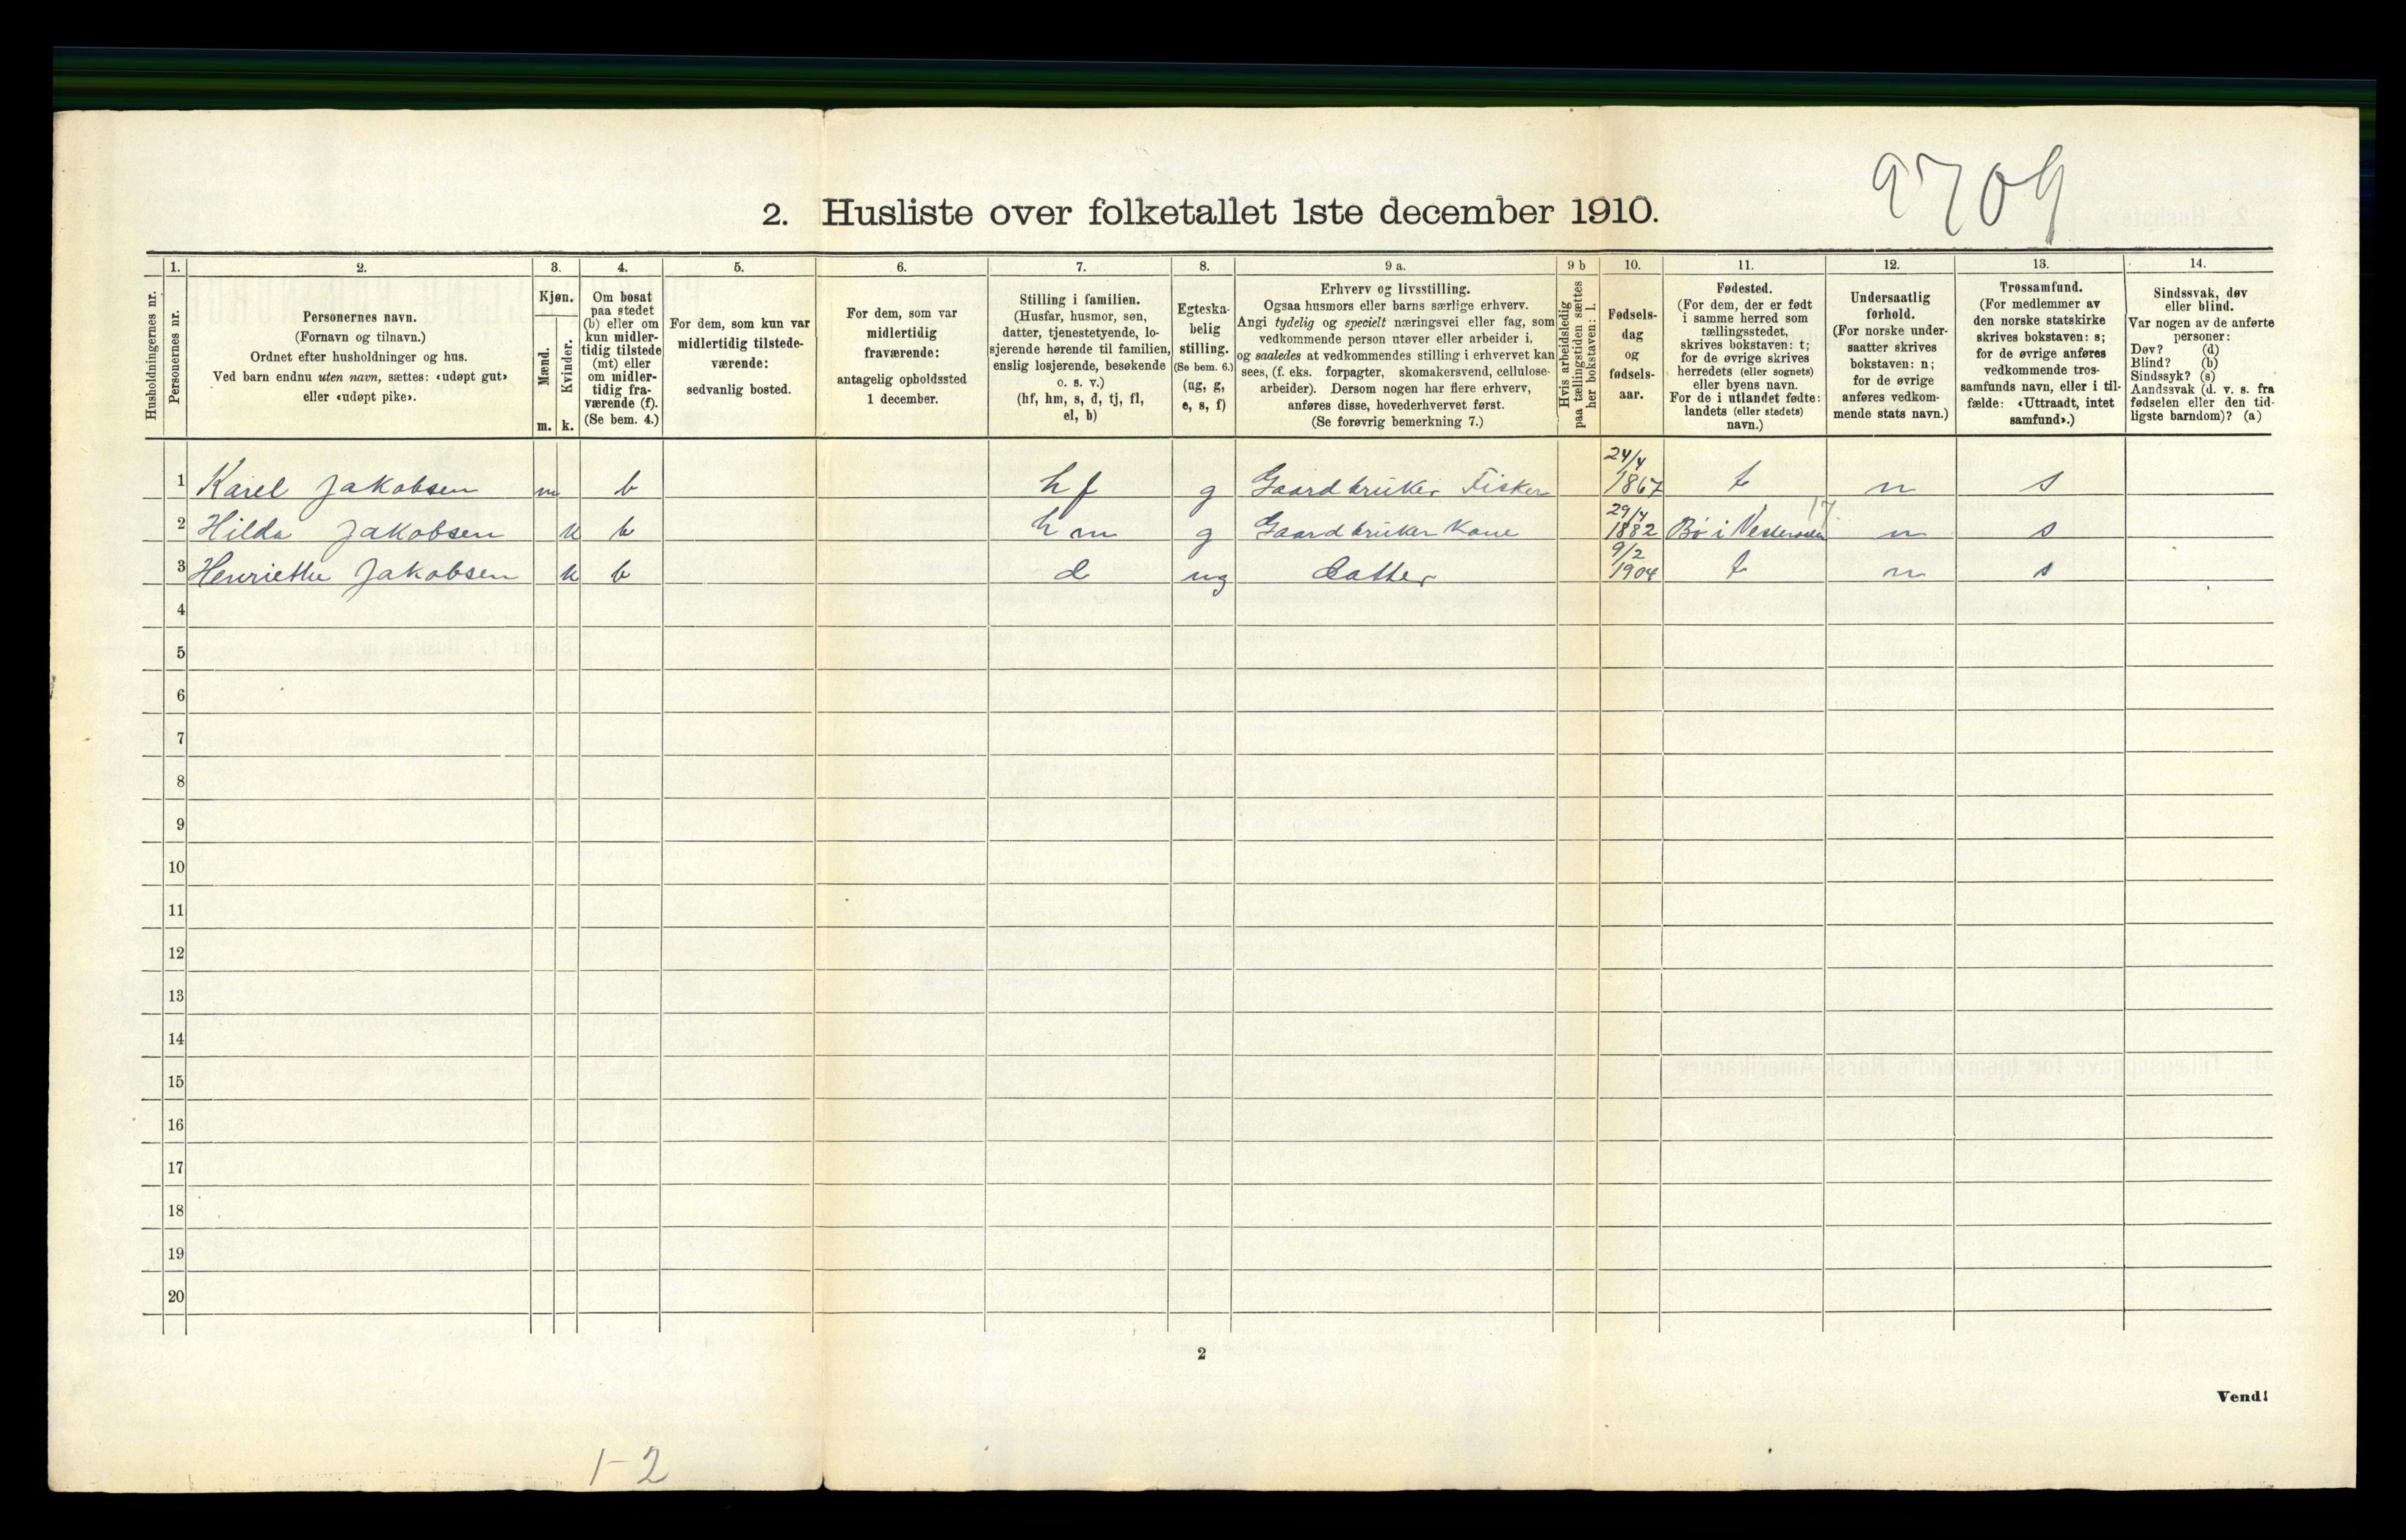 9709
2. Husliste over folketallet 1ste december 1910.
Husholdningernes nr.
1.
Personernes nr.
2.
Personernes navn.
(Fornavn og tilnavn.)
Ordnet efter husholdninger og hus.
Ved barn endnu uten navn, sættes: «udøpt gut»
eller «udøpt pike».
3.
Kjøn.
Mænd.
Kvinder.
m. k.
4.
Om bosat
paa stedet
(b) eller om
kun midler-
tidig tilstede
(mt) eller
om midler-
tidig fra-
værende (f).
(Se bem. 4.)
5.
For dem, som kun var
midlertidig tilstede-
værende:
sedvanlig bosted.
6.
For dem, som var
midlertidig
fraværende:
antagelig opholdssted
1 december.
7.
Stilling i familien.
(Husfar, husmor, søn,
datter, tjenestetyende, lo-
sjerende hørende til familien,
enslig losjerende, besøkende
o. s. v.)
(hf, hm, s, d, tj, fl,
el, b)
8.
Egteska-
belig
stilling.
(Se bem. 6.)
(ug, g,
e, s, f)
9 a.
Erhverv og livsstilling.
Ogsaa husmors eller barns særlige erhverv.
Angi tydelig og specielt næringsvei eller fag, som
vedkommende person utøver eller arbeider i,
og saaledes at vedkommendes stilling i erhvervet kan
sees, (f. eks. forpagter, skomakersvend, cellulose-
arbeider). Dersom nogen har flere erhverv,
anføres disse, hovederhvervet først.
(Se forøvrig bemerkning 7.)
9 b
Hvis arbeidsledig
paa tællingstiden sættes
her bokstaven: l.
10.
Fødsels-
dag
og
fødsels-
aar.
11.
Fødested.
(For dem, der er født
i samme herred som
tællingsstedet,
skrives bokstaven: t;
for de øvrige skrives
herredets (eller sognets)
eller byens navn.
For de i utlandet fødte:
landets (eller stedets)
navn.)
12.
Undersaatlig
forhold.
(For norske under-
saatter skrives
bokstaven: n;
for de øvrige
anføres vedkom-
mende stats navn.)
13.
Trossamfund.
(For medlemmer av
den norske statskirke
skrives bokstaven: s;
for de øvrige anføres
vedkommende tros-
samfunds navn, eller i til-
fælde: «Uttraadt, intet
samfund».)
14.
Sindssvak, døv
eller blind.
Var nogen av de anførte
personer:
Døv? (d)
Blind? (b)
Sindssyk? (s)
Aandssvak (d. v. s. fra
fødselen eller den tid-
ligste barndom)? (a)
1 Karel Jakobsen m b hf g Gaardbruker Fisker 24/4 1867 t n s
2 Hilda Jakobsen k b hm g Gaardbruker Kone 29/4 1882 Bø i Vesteraalen 17 n s
3 Henriethe Jakobsen k b d ug Datter 9/2 1904 t n s
4
5
6
7
8
9
10
11
12
13
14
15
16
17
18
19
20
2
Vend!
1-2